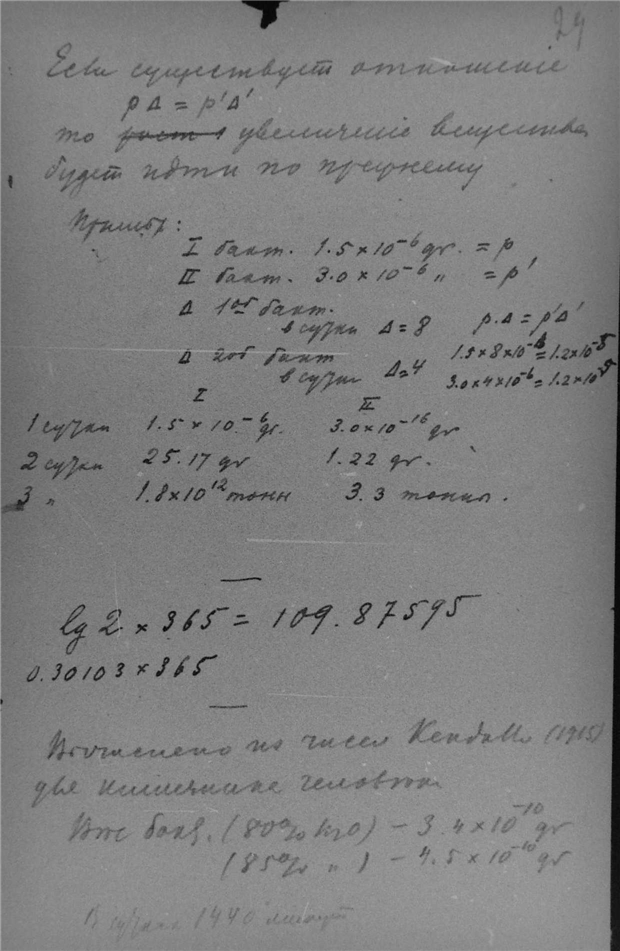 29
Если существует отношение
pΔ = p'Δ'
то увеличение вещества
будет идти по прежнему
Пример:
I бакт. 1.5×10⁻⁶ gr. = p
II бакт. 3.0×10⁻⁶ „ = p'
Δ 1ой бакт.
в сутки Δ=8 p.Δ = p'Δ'
Δ 2ой бакт
в сутки Δ=4
1.5×8×10⁻⁶=1.2×10⁻⁵
3.0×4×10⁻⁶=1.2×10⁻⁵
I II
1 сутки 1.5×10⁻⁶ gr. 3.0×10⁻¹⁶ gr
2 сутки 25.17 gr 1.22 gr.
3 „ 1.8×10¹² тонн 3.3 тонны.
lg 2 × 365 = 109.87595
0.30103×365
Вычислено из чисел Kendall (1915)
для кишечника человека
Вес бакт. (80% H₂O) – 3.4×10⁻¹⁰ gr
(85% „ ) – 4.5×10⁻¹⁰ gr
В сутках 1440 минут